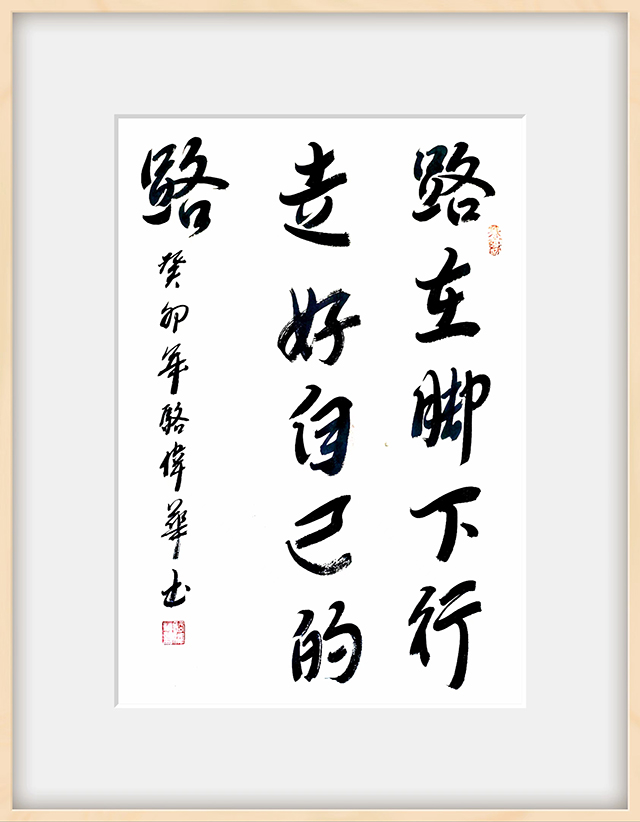 路在脚下行
走好自己的
路
癸卯年駱偉華书